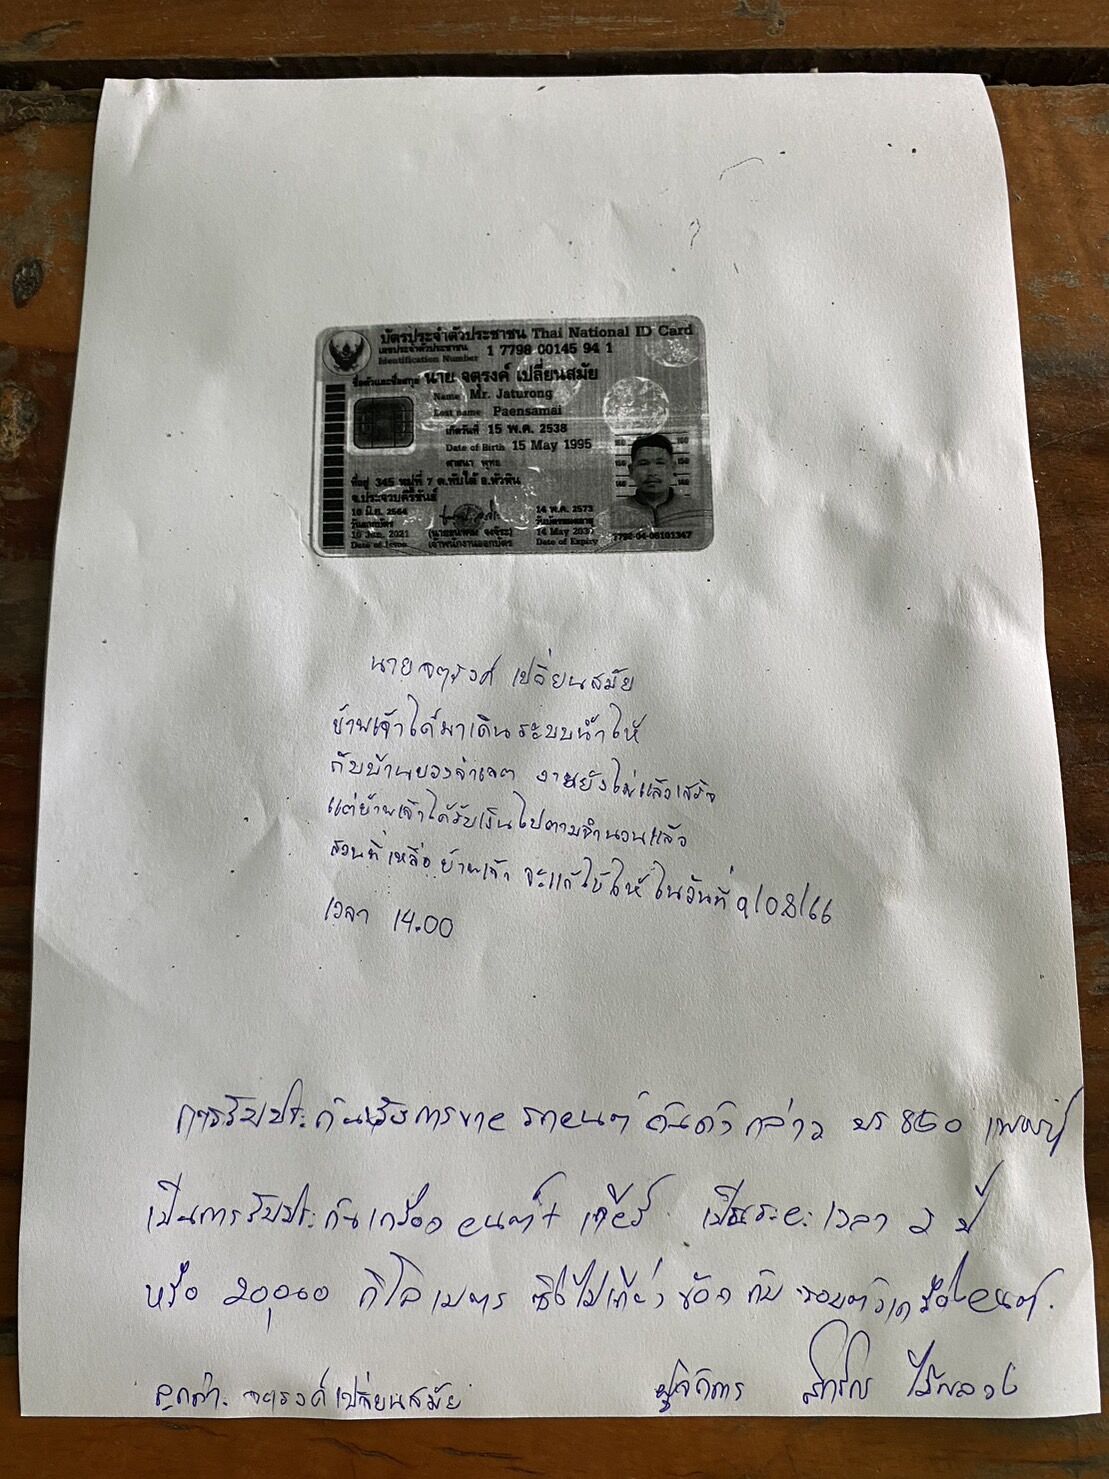 บัตรประจำตัวประชาชน Thai National ID Card
เลขประจำตัวประชาชน
Identification Number 1 7798 00145 94 1
ชื่อตัวและชื่อสกุล นาย จตุรงค์ เปลี่ยนสมัย
Name Mr. Jaturong
Last name Paensamai
เกิดวันที่ 15 พ.ค. 2538
Date of Birth 15 May 1995
ศาสนา พุทธ
ที่อยู่ 345 หมู่ที่ 7 ต.ทับใต้ อ.หัวหิน
จ.ประจวบคีรีขันธ์
10 มิ.ย. 2564
วันออกบัตร
10 Jun. 2021
Date of Issue
เจ้าพนักงานออกบัตร
14 พ.ค. 2573
วันบัตรหมดอายุ
14 May 2030
Date of Expiry
7798-04-06101347
นายจตุรงค์ เปลี่ยนสมัย
ข้าพเจ้าได้มาเดินระบบน้ำให้
กับบ้านของ งานยังไม่แล้วเสร็จ
แต่ข้าพเจ้าได้รับเงินไปตามจำนวนแล้ว
ส่วนที่เหลือ ข้าพเจ้า จะแก้ไขให้ ในวันที่ 9/08/66
เวลา 14.00
การรับประกันหลังการขาย รถยนต์ คันดังกล่าว
เป็นการรับประกันเครื่องยนต์+เกียร์ เป็นระยะเวลา 2 ปี
หรือ 20,000 กิโลเมตร ซึ่งไม่เกี่ยวข้องกับ รอบตัวเครื่องยนต์.
ลูกค้า. จตุรงค์ เปลี่ยนสมัย
ผู้จัดการ